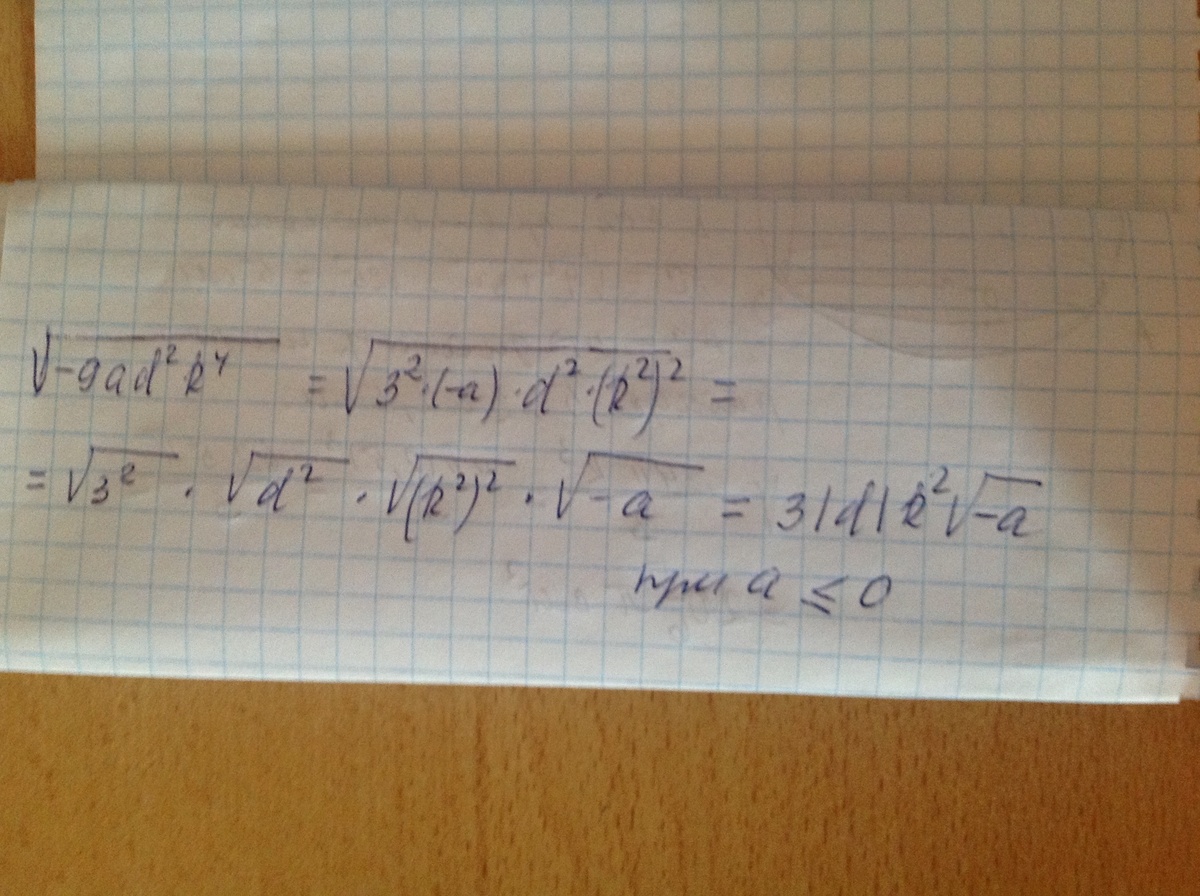 √-9ad²k⁴ = √3²·(-a)·d²·(k²)² =
= √3² · √d² · √(k²)² · √-a = 3|d|k²√-a
при a ≤ 0